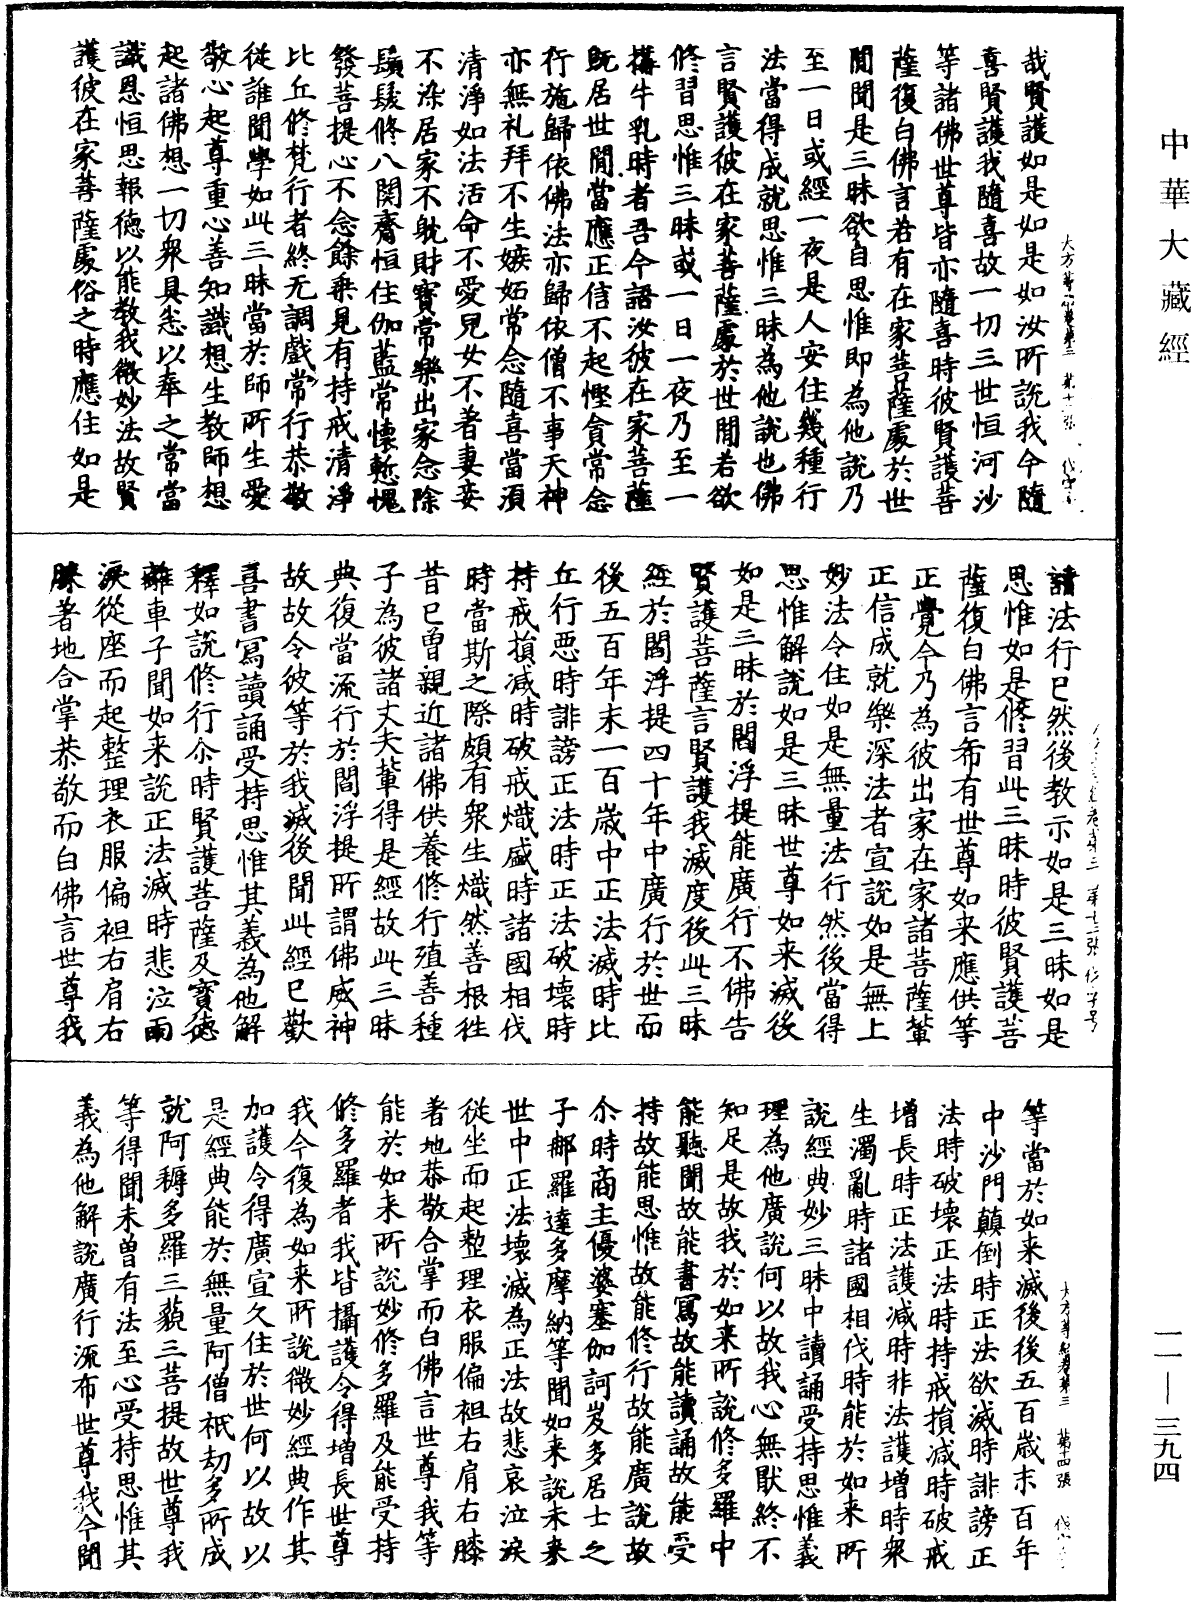 中華大藏經
哉賢護如是如是如汝所說我今隨
喜賢護我隨喜故一切三世恒河沙
等諸佛世尊皆亦隨喜時彼賢護菩
薩復白佛言若有在家菩薩處於世
間聞是三昧欲自思惟即為他說乃
至一日或經一夜是人安住幾種行
法當得成就思惟三昧為他說也佛
言賢護彼在家菩薩處於世間若欲
修習思惟三昧或一日一夜乃至一
搆牛乳時者吾今語汝彼在家菩薩
既居世間當應正信不起慳貪常念
行施歸依佛法亦歸依僧不事天神
亦無礼拜不生嫉妬常念隨喜當湏
清淨如法活命不愛兒女不著妻妾
不染居家不躭財寶常樂出家念除
鬚髮修八関齋恒住伽藍常懷慙愧
發菩提心不念餘乗見有持戒清淨
比丘修梵行者終无調戲常行恭敬
從誰聞學如此三昧當於師所生愛
敬心起尊重心善知識想生教師想
起諸佛想一切衆具悉以奉之常當
識恩恒思報德以能教我微妙法故賢
護彼在家菩薩處俗之時應住如是
諸法行已然後教示如是三昧如是
思惟如是修習此三昧時彼賢護菩
薩復白佛言希有世尊如来應供等
正覺今乃為彼出家在家諸菩薩軰
正信成就樂深法者宣說如是無上
妙法令住如是無量法行然後當得
思惟解說如是三昧世尊如来滅後
如是三昧於閻浮提能廣行不佛告
賢護菩薩言賢護我滅度後此三昧
經於閻浮提四十年中廣行於世而
後五百年末一百歲中正法滅時比
丘行惡時誹謗正法時正法破壞時
持戒損減時破戒熾盛時諸國相伐
時當斯之際頗有衆生熾然善根徃
昔已曾親近諸佛供養修行殖善種
子為彼諸丈夫軰得是經故此三昧
典復當流行於閻浮提所謂佛威神
故故令彼等於我滅後聞此經已歡
喜書寫讀誦受持思惟其義為他解
釋如說修行尒時賢護菩薩及寶德
離車子聞如来說正法滅時悲泣雨
淚從座而起整理衣服偏袒右肩右
膝著地合掌恭敬而白佛言世尊我
等當於如来滅後後五百歲末百年
中沙門顛倒時正法欲滅時誹謗正
法時破壞正法時持戒損減時破戒
增長時正法護減時非法護增時衆
生濁亂時諸國相伐時能於如来所
說經典妙三昧中讀誦受持思惟義
理為他廣說何以故我心無猒終不
知足是故我於如来所說修多羅中
能聽聞故能書寫故能讀誦故能受
持故能思惟故能修行故能廣說故
尒時商主優婆塞伽訶岌多居士之
子郍羅達多摩納等聞如来說未来
世中正法壞滅為正法故悲哀泣淚
從坐而起整理衣服偏袒右肩右膝
著地恭敬合掌而白佛言世尊我等
能於如来所說妙修多羅及能受持
修多羅者我皆攝護令得増長世尊
我今復為如来所說微妙經典作其
加護令得廣宣久住於世何以故以
是經典能於無量阿僧祇劫多所成
就阿耨多羅三藐三菩提故世尊我
等得聞未曽有法至心受持思惟其
義為他解說廣行流布世尊我今聞
一一—三九四